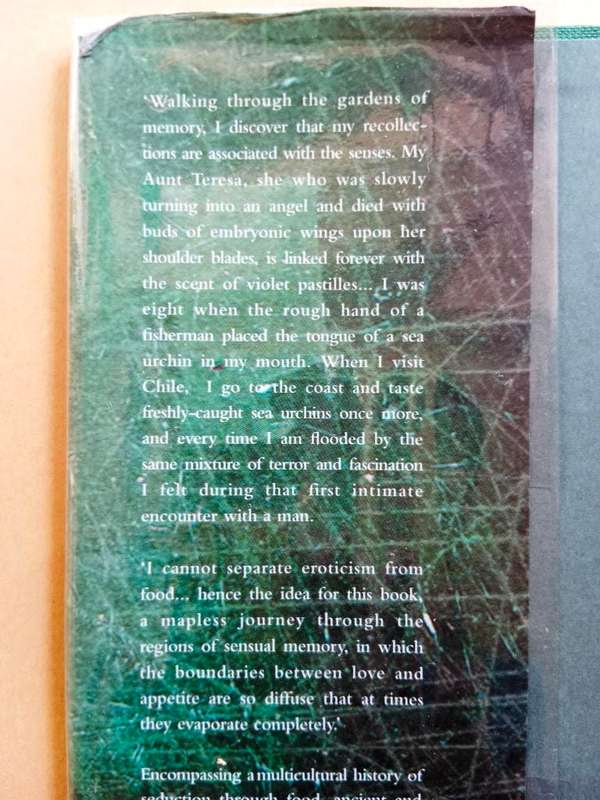 'Walking through the gardens of
memory, I discover that my recollec-
tions are associated with the senses. My
Aunt Teresa, she who was slowly
turning into an angel and died with
buds of embryonic wings upon her
shoulder blades, is linked forever with
the scent of violet pastilles... I was
eight when the rough hand of a
fisherman placed the tongue of a sea
urchin in my mouth. When I visit
Chile, I go to the coast and taste
freshly-caught sea urchins once more,
and every time I am flooded by the
same mixture of terror and fascination
I felt during that first intimate
encounter with a man.
'I cannot separate eroticism from
food... hence the idea for this book,
a mapless journey through the
regions of sensual memory, in which
the boundaries between love and
appetite are so diffuse that at times
they evaporate completely.'
Encompassing a multicultural history of
seduction through food, ancient and